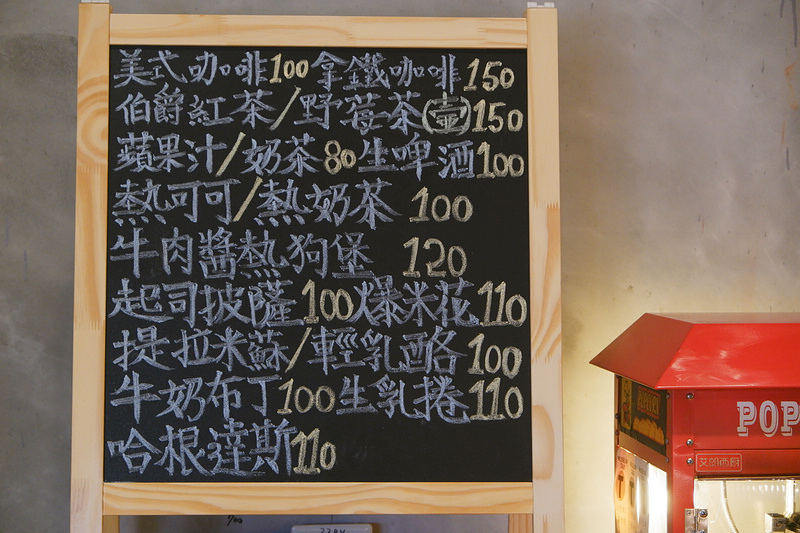 美式咖啡100 拿鐵咖啡150
伯爵紅茶/野莓茶(壺)150
蘋果汁/奶茶80 生啤酒100
熱可可/熱奶茶 100
牛肉醬熱狗堡 120
起司披薩100 爆米花110
提拉米蘇/輕乳酪 100
牛奶布丁100 生乳捲110
哈根達斯110
POP
艾朗西厨
220V